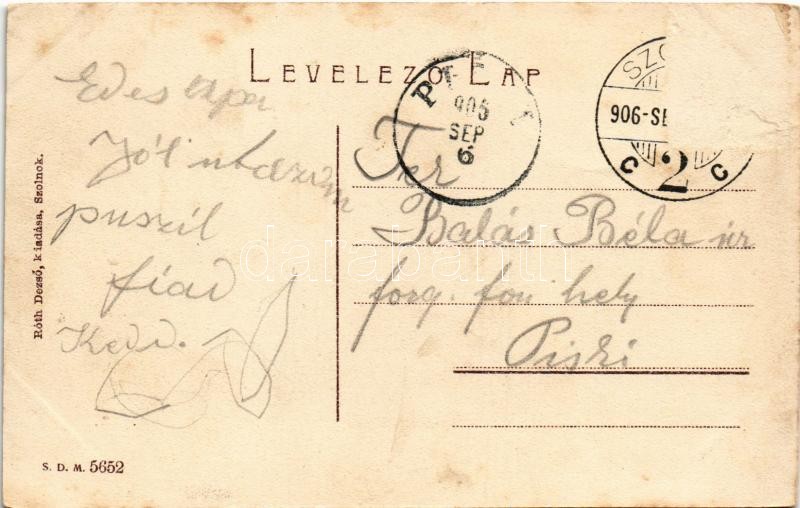 LEVELEZŐ LAP
Edes apa
Jól utazom
puszil
fiad
Róth Dezső, kiadása, Szolnok.
S. D. M. 5652
P
906
SEP
6
SZO
906-SE
C 2 C
Balás Béla úr
forg. fon. hely
Piski
darabanth